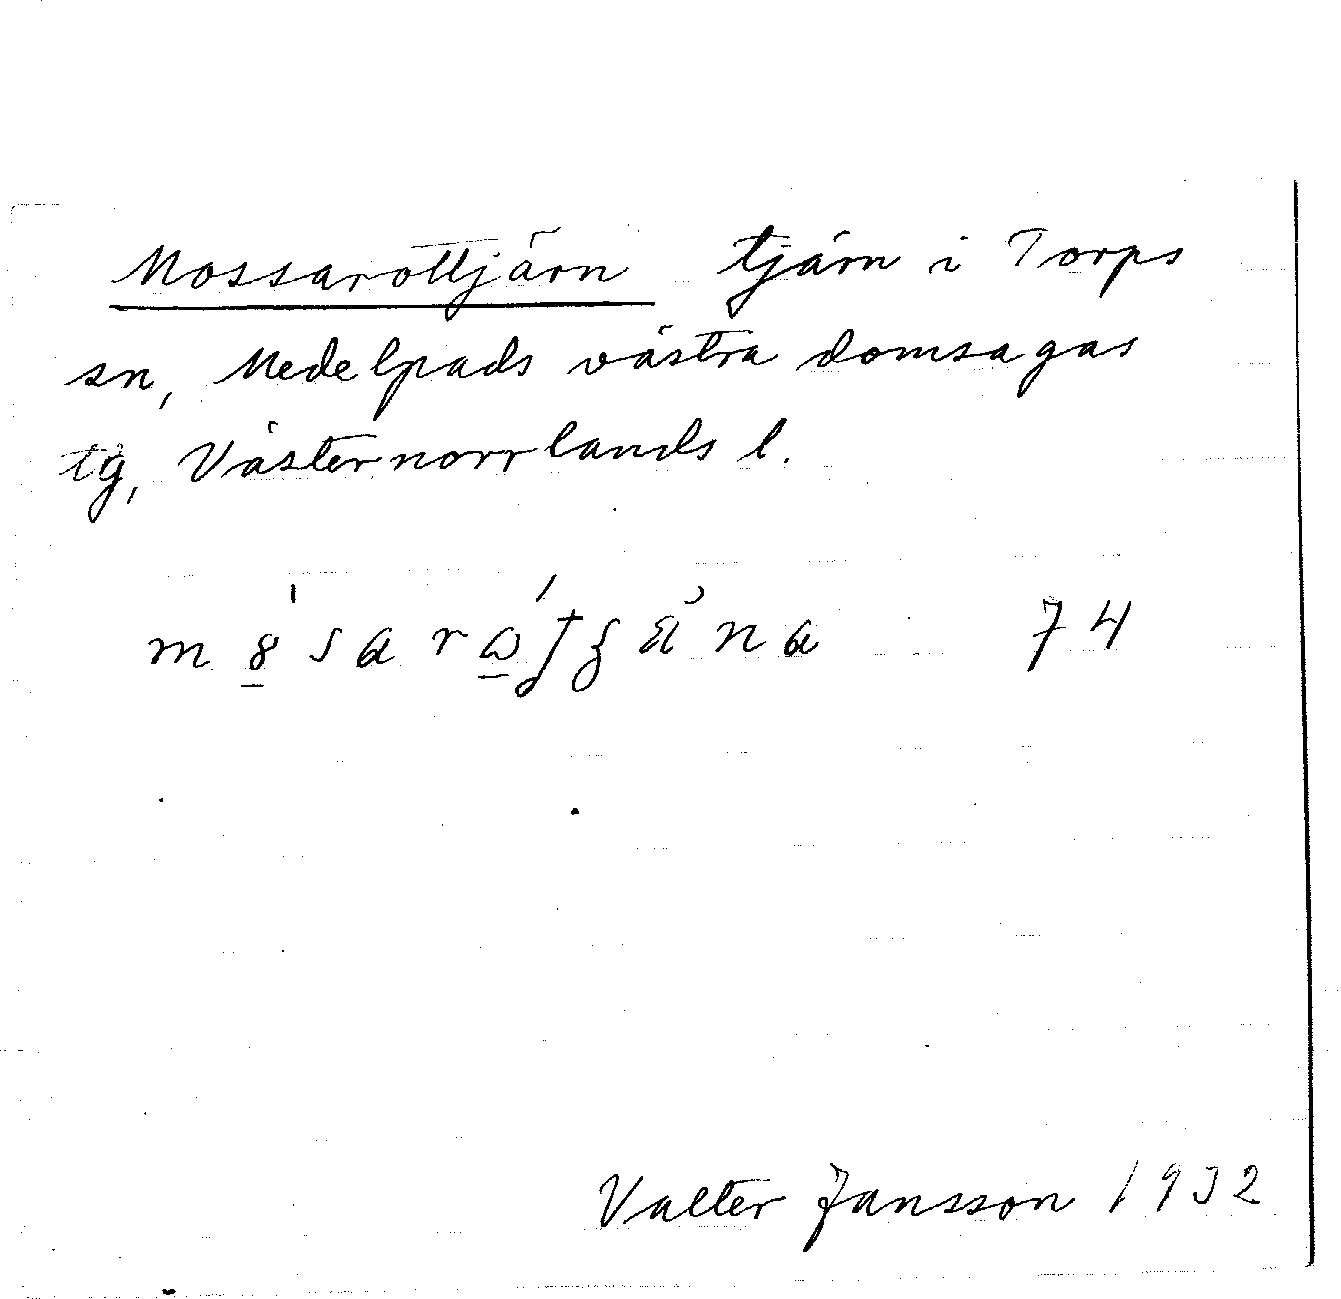 Mossarottjärn tjärn i Torps
sn, Medelpads västra domsagas
tg, Västernorrlands l.
74
Valter Jansson 1932